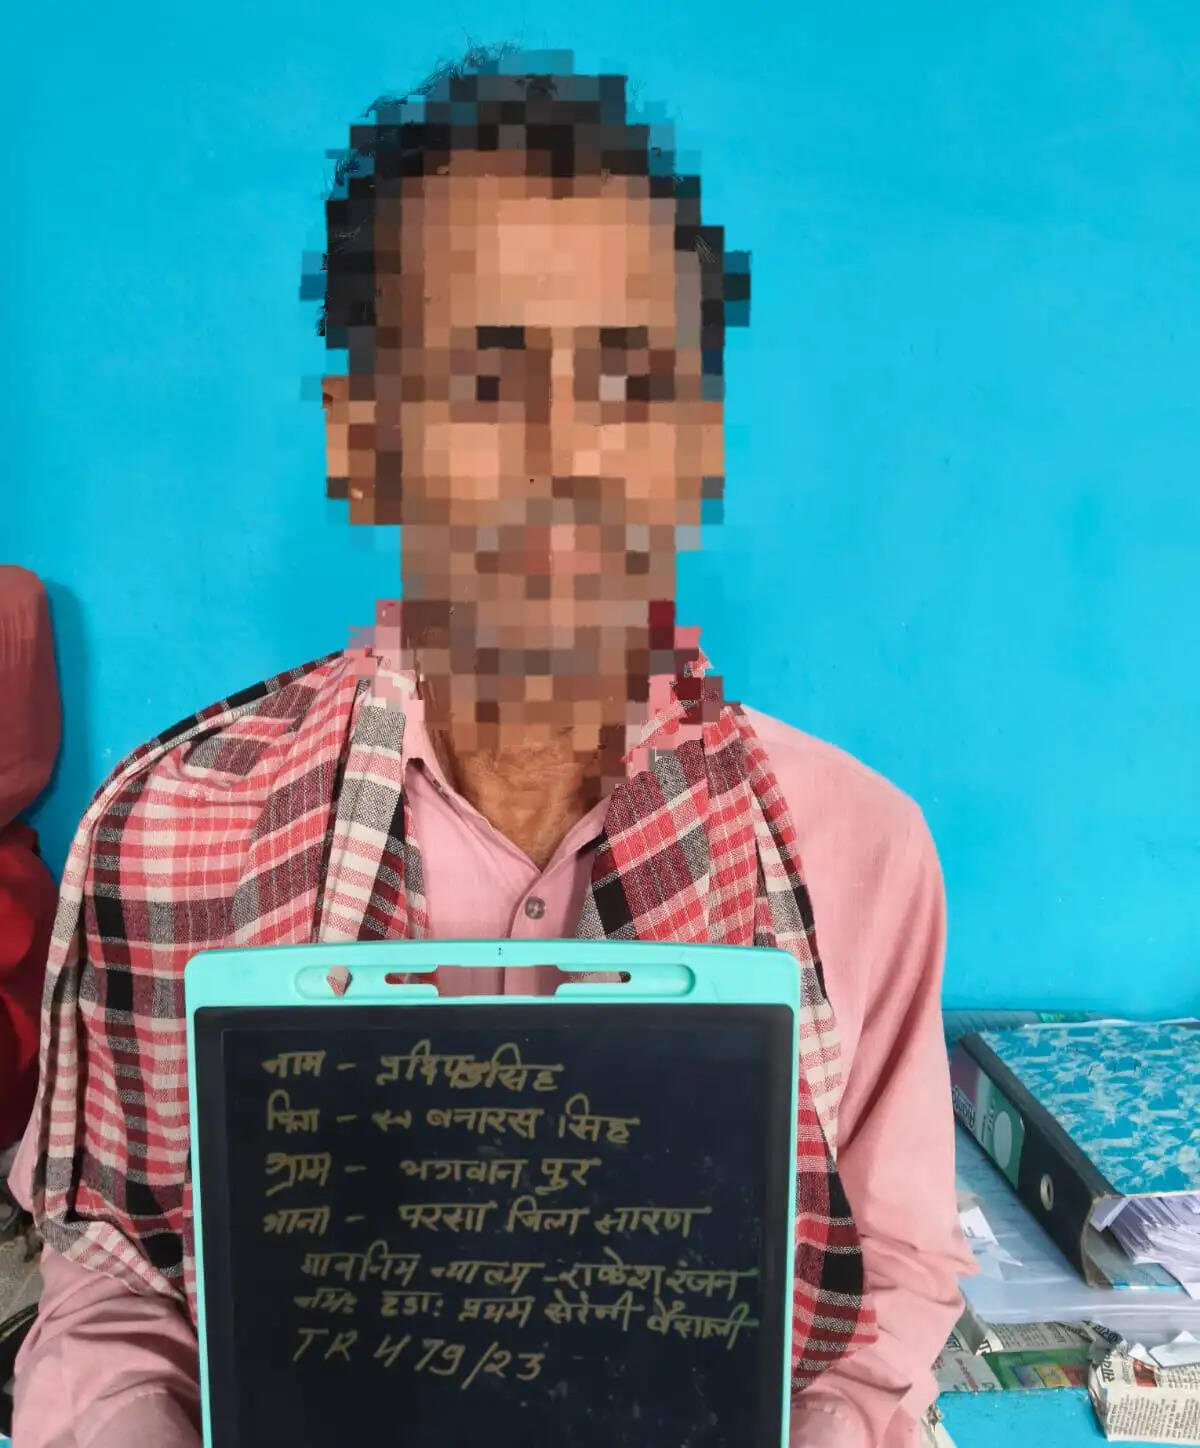 नाम - प्रदिप सिंह
पिता - स्व बनारस सिंह
ग्राम - भगवान पुर
थाना - परसा जिला सारण
माननिय न्यालय - राकेश रंजन
प्रथम सेरेनी वैशाली
TR 479/23